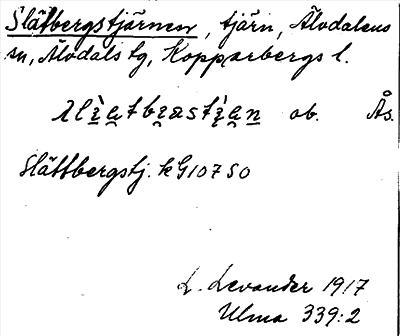 Slätbergstjärnen, tjärn, Älvdalens
sn, Älvdals tg, Kopparbergs l.
ob. Ås.
Slättbergstj. k G10750
L. Levander 1917
Ulma 339:2